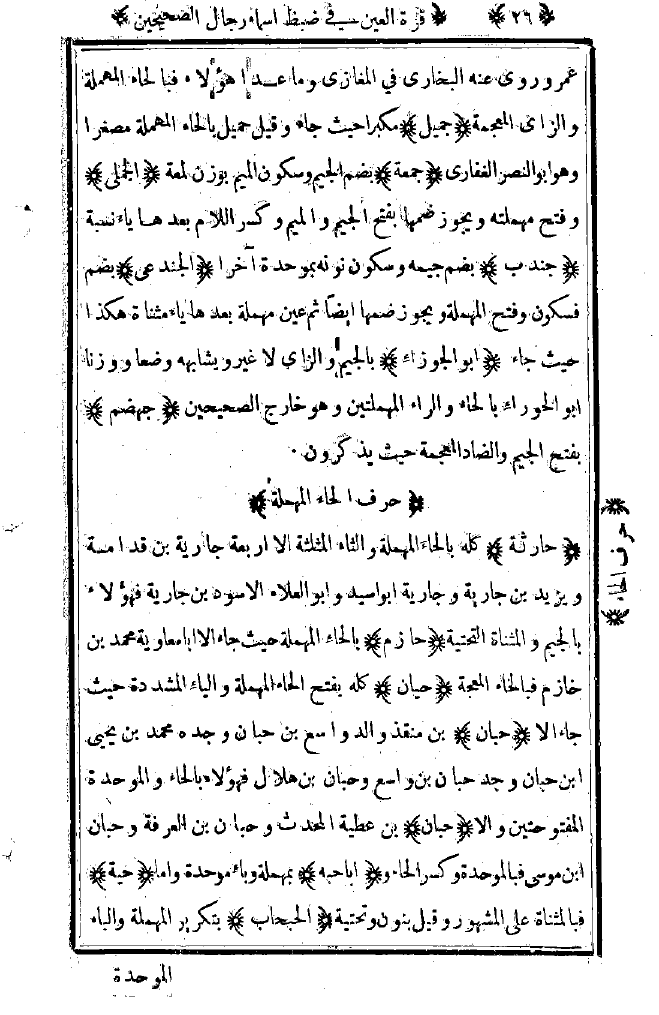 ﴿ ٢٦ ﴾ ﴿ قرة العين في ضبط اسماء رجال الصحيحين ﴾
عمر وروى عنه البخارى في المغازى وما عدا هؤلاء فبا لحاء المهملة
والزاى المعجمة ﴿ جميل ﴾ مكبرا حيث جاء وقيل حميل بالحاء المهملة مصغرا
وهو ابو النصر الغفارى ﴿ جمعة ﴾ بضم الجيم وسكون الميم بوزن لمعة ﴿ الجملى ﴾
وفتح مهملته ويجوز ضمها بفتح الجيم والميم وكسر اللام بعدها ياء نسبة
﴿ جندب ﴾ بضم جيمه وسكون نونه بموحدة آخرا ﴿ الجندعى ﴾ بضم
فسكون وفتح المهملة ويجوز ضمها ايضا ثم عين مهملة بعدها ياء مثناة هكذا
حيث جاء ﴿ ابو الجوزاء ﴾ بالجيم والزاي لا غير ويشابهه وضعا ووزنا
ابو الحوراء بالحاء والراء المهملتين وهو خارج الصحيحين ﴿ جهضم ﴾
بفتح الجيم والضاد المعجمة حيث يذكرون ٠
﴿ حرف الحاء المهملة ﴾
﴿ حارثة ﴾ كله بالحاء المهملة والثاء المثلثة الا اربعة جارية بن قدامة
ويزيد بن جارية وجارية ابو اسيد وابو العلاء الاسود بن جارية فهؤلاء
بالجيم والمثناة التحتية ﴿ حازم ﴾ بالحاء المهملة حيث جاء الا ابا معاوية محمد بن
خازم فبالخاء المعجمة ﴿ حيان ﴾ كله بفتح الحاء المهملة والياء المشددة حيث
جاء الا ﴿ حبان ﴾ بن منقذ والد واسع بن حبان وجده محمد بن يحيى
ابن حبان وجد حبان بن واسع وحبان بن هلال فهؤلاء بالحاء والموحدة
المفتوحتين والا ﴿ حبان ﴾ بن عطية المحدث وحبان بن العرفة وحبان
ابن موسى فبالموحدة وكسر الحاء و ﴿ اباحبه ﴾ بمهملة وباء موحدة واما ﴿ حية ﴾
فبالمثناة على المشهور وقيل بنون وتحتية ﴿ الحبحاب ﴾ بتكرير المهملة والباء
الموحدة
﴿ حرف الحاء ﴾